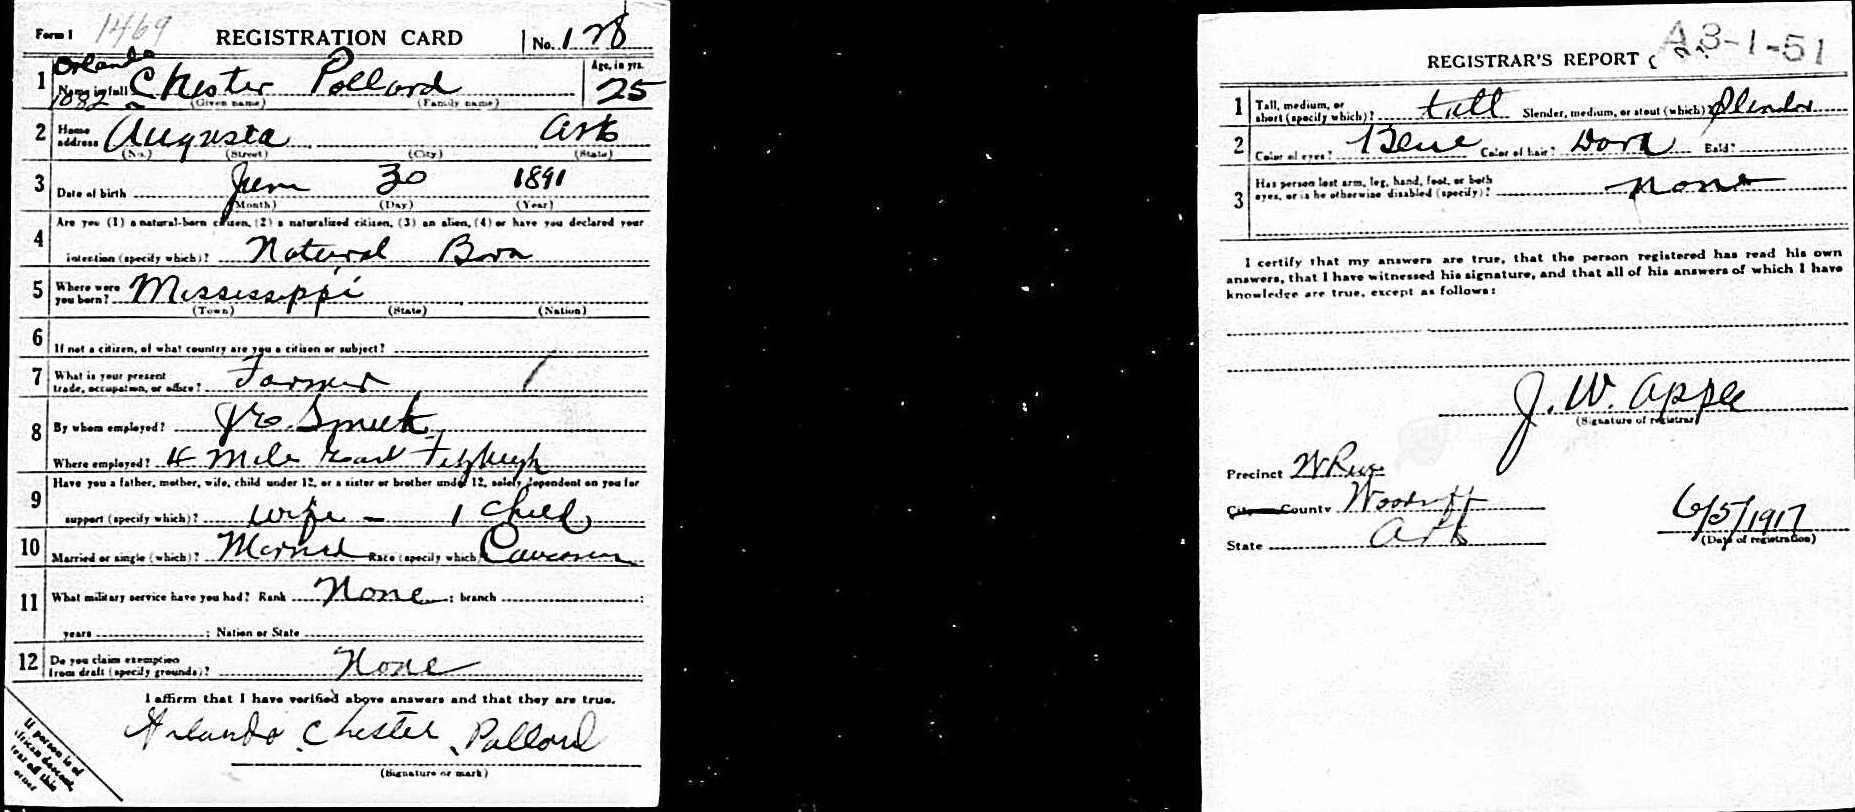 Form 1 1469 REGISTRATION CARD No. 128
Orlando
1 Name in full Chester Pollard Age, in yrs. 25
1082 (Given name) (Family name)
2 Home address Augusta Ark
(No.) (Street) (City) (State)
3 Date of birth June 30 1891
(Month) (Day) (Year)
4 Are you (1) a natural-born citizen, (2) a naturalized citizen, (3) an alien, (4) or have you declared your
intention (specify which)? Natural Born
5 Where were you born? Mississippi
(Town) (State) (Nation)
6 If not a citizen, of what country are you a citizen or subject?
7 What is your present trade, occupation, or office? Farmer
8 By whom employed?
Where employed? 4 Mile East Fitzhugh
9 Have you a father, mother, wife, child under 12, or a sister or brother under 12, solely dependent on you for
support (specify which)? Wife - 1 Child
10 Married or single (which)? Married Race (specify which) Caucasian
11 What military service have you had? Rank None ; branch ;
years ; Nation or State
12 Do you claim exemption from draft (specify grounds)? None
I affirm that I have verified above answers and that they are true.
Orlando Chester Pollard
(Signature or mark)
If person is of
African descent,
tear off this
corner
REGISTRAR'S REPORT A3-1-51
1 Tall, medium, or short (specify which)? tall Slender, medium, or stout (which)? Slender
2 Color of eyes? Blue Color of hair? Dark Bald?
3 Has person lost arm, leg, hand, foot, or both eyes, or is he otherwise disabled (specify)? none
I certify that my answers are true, that the person registered has read his own
answers, that I have witnessed his signature, and that all of his answers of which I have
knowledge are true, except as follows:
J. W. Apple
(Signature of registrar)
Precinct
City County Woodruff
State Ark 6/5/1917
(Date of registration)